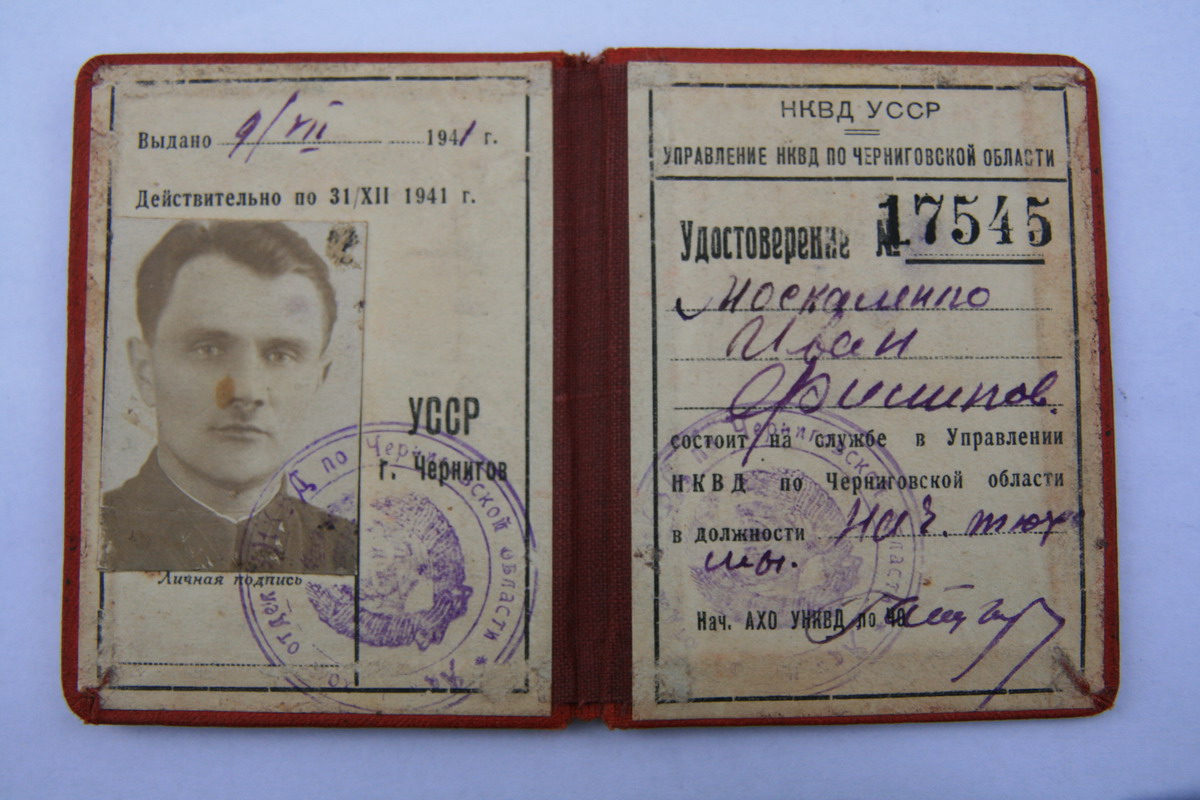 Выдано 9/VII 1941 г.
Действительно по 31/XII 1941 г.
УССР
г. Чернигов
Личная подпись
по Черниговской области *
отдел
НКВД УССР
УПРАВЛЕНИЕ НКВД ПО ЧЕРНИГОВСКОЙ ОБЛАСТИ
Удостоверение № 17545
Москаленко
Иван
Филипов.
состоит на службе в Управлении
НКВД по Черниговской области
в должности нач. тюрь
мы.
Нач. АХО УНКВД по ЧО